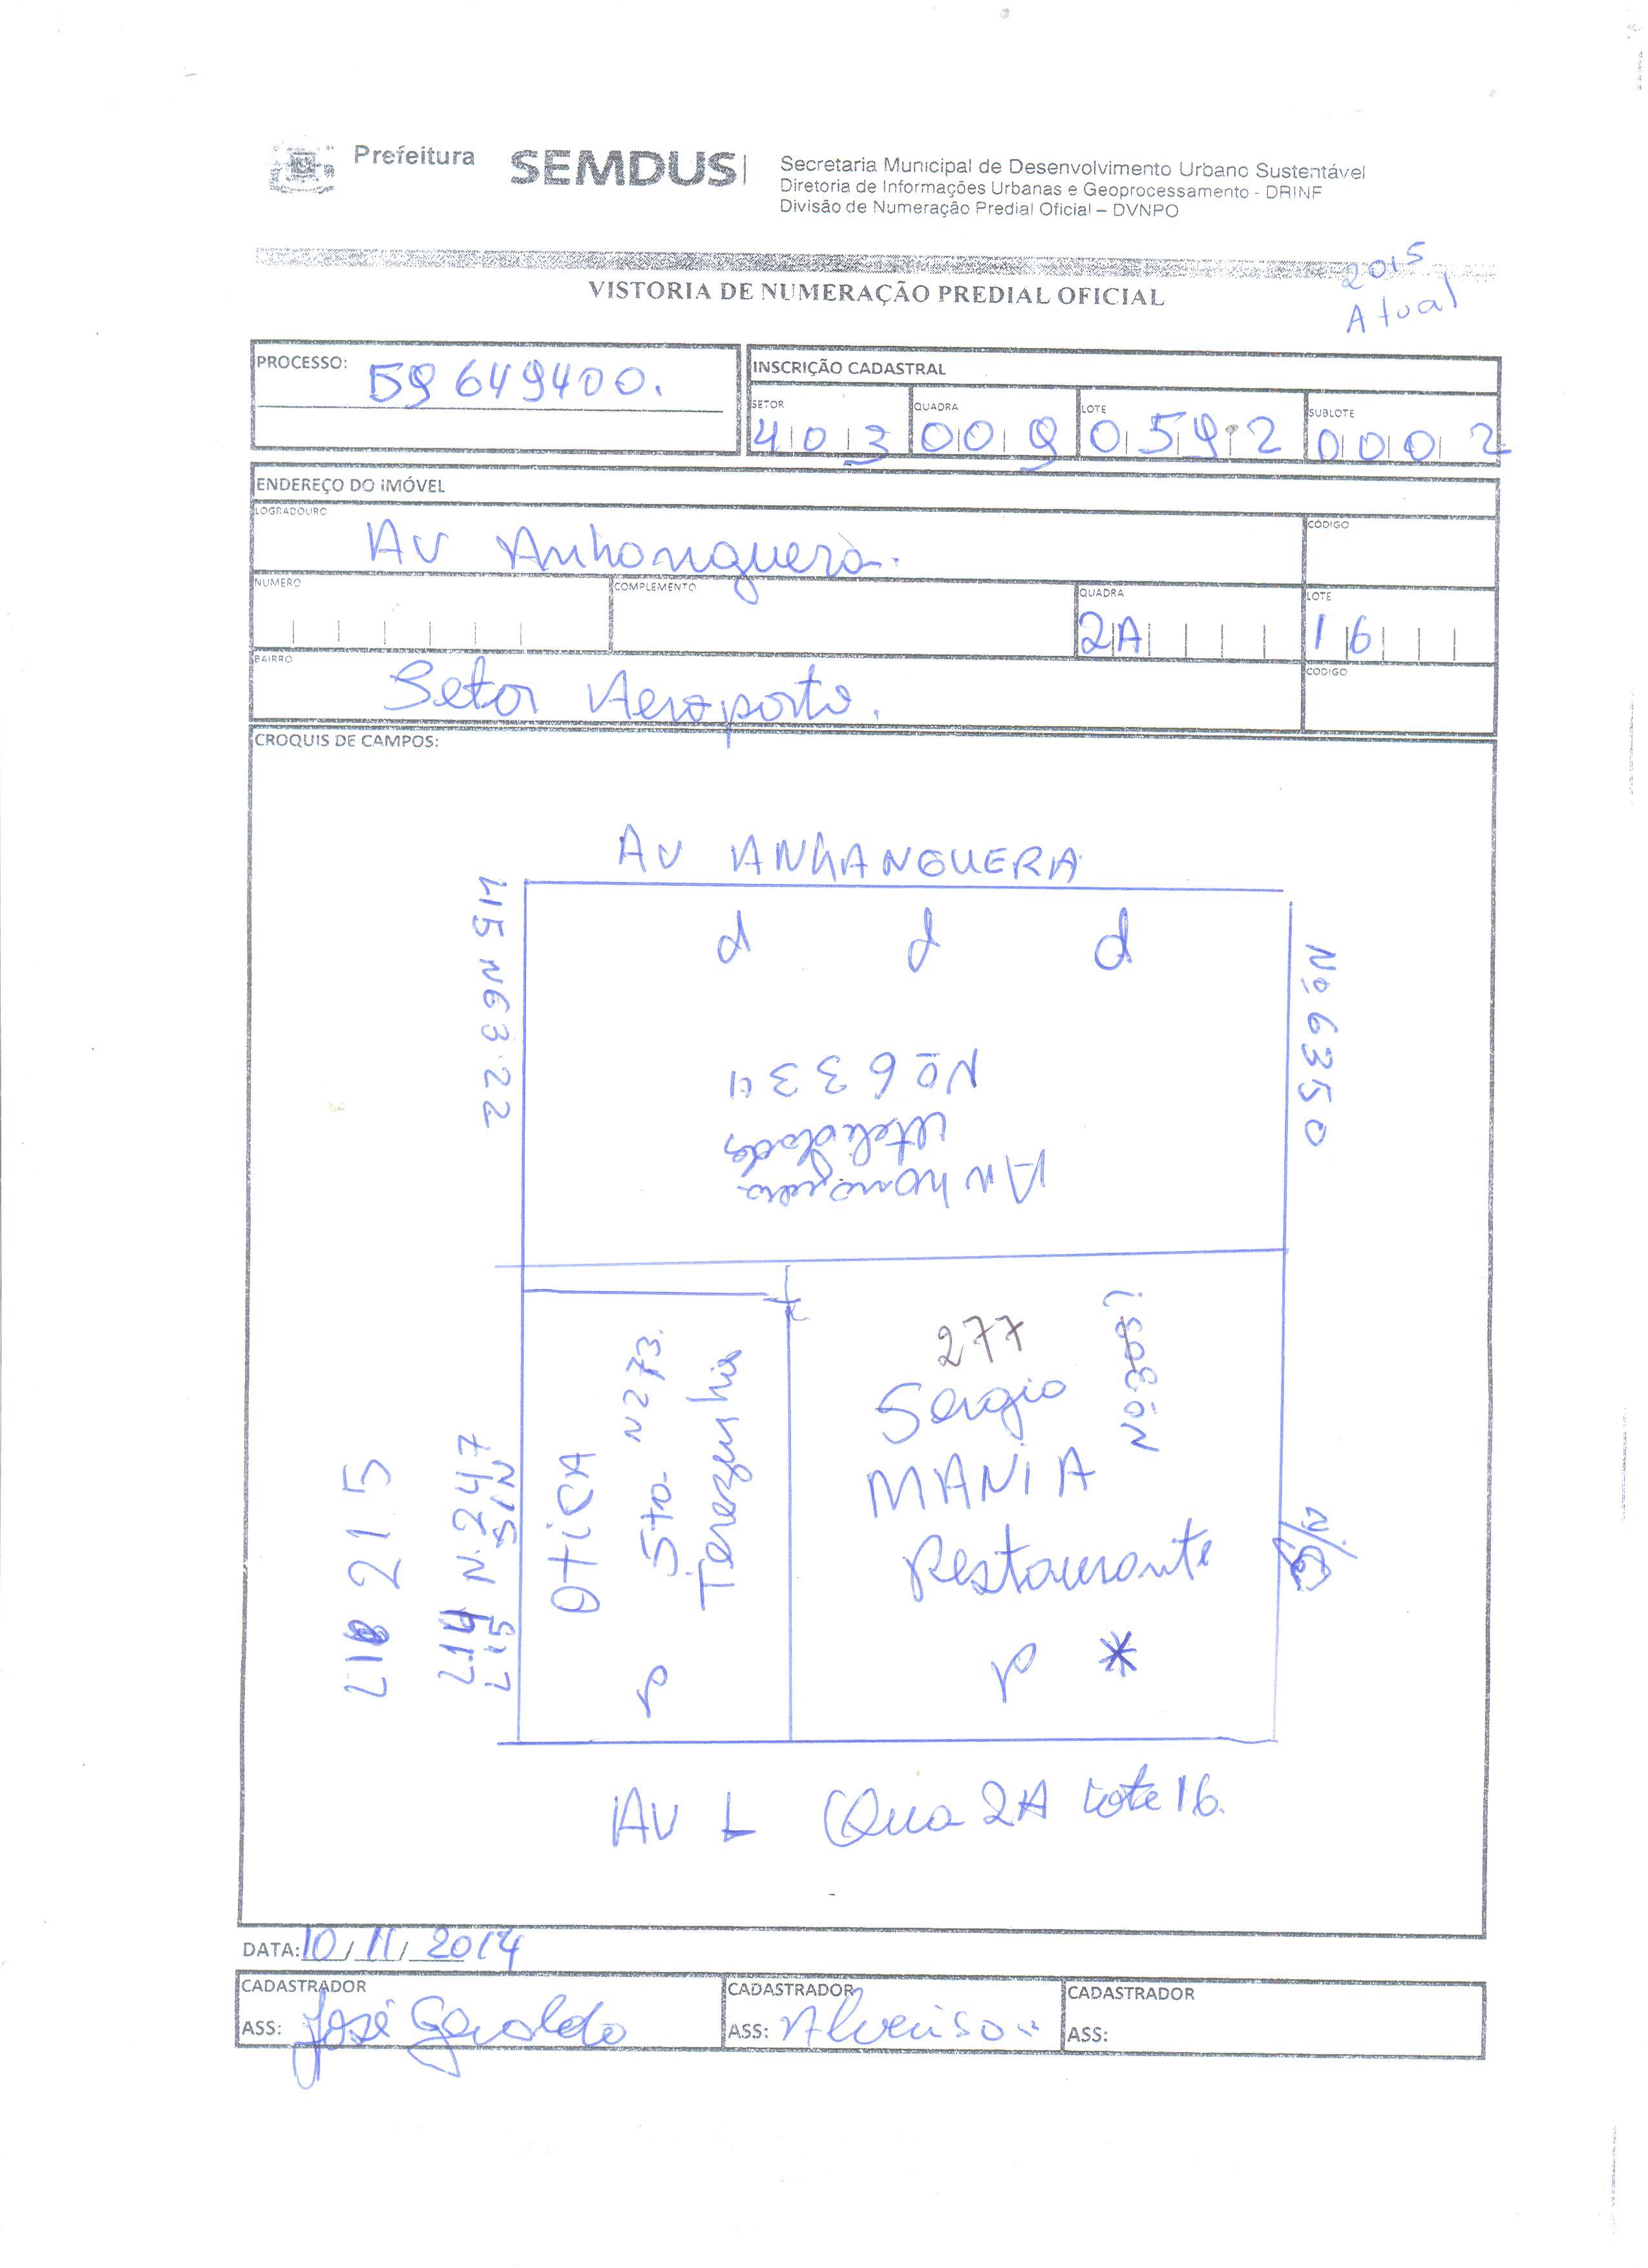 Prefeitura
SEMDUS
Secretaria Municipal de Desenvolvimento Urbano Sustentável
Diretoria de Informações Urbanas e Geoprocessamento - DRINF
Divisão de Numeração Predial Oficial – DVNPO
2015
Atual
VISTORIA DE NUMERAÇÃO PREDIAL OFICIAL
PROCESSO: 59649400.
INSCRIÇÃO CADASTRAL
SETOR QUADRA LOTE SUBLOTE
403 009 0592 0002
ENDEREÇO DO IMÓVEL
LOGRADOURO CÓDIGO
AV Anhanguera.
NUMERO COMPLEMENTO QUADRA LOTE
2A 16
BAIRRO CÓDIGO
Setor Aeroporto.
CROQUIS DE CAMPOS:
AV ANhANGUERA
L15 N6322
d d d
Nº 6350
Nº 6334
Utilidades
Anhanguera
277
Sergio
MANIA
Restaurante
P *
Nº 309?
S/N
OTiCA
Sta. N273.
Terezinha
P
215
L14 N. 247
L15 S/N
AV L Qua 2A Lote 16.
DATA: 10/11/2014
CADASTRADOR CADASTRADOR CADASTRADOR
ASS: José Geraldo ASS: ASS: